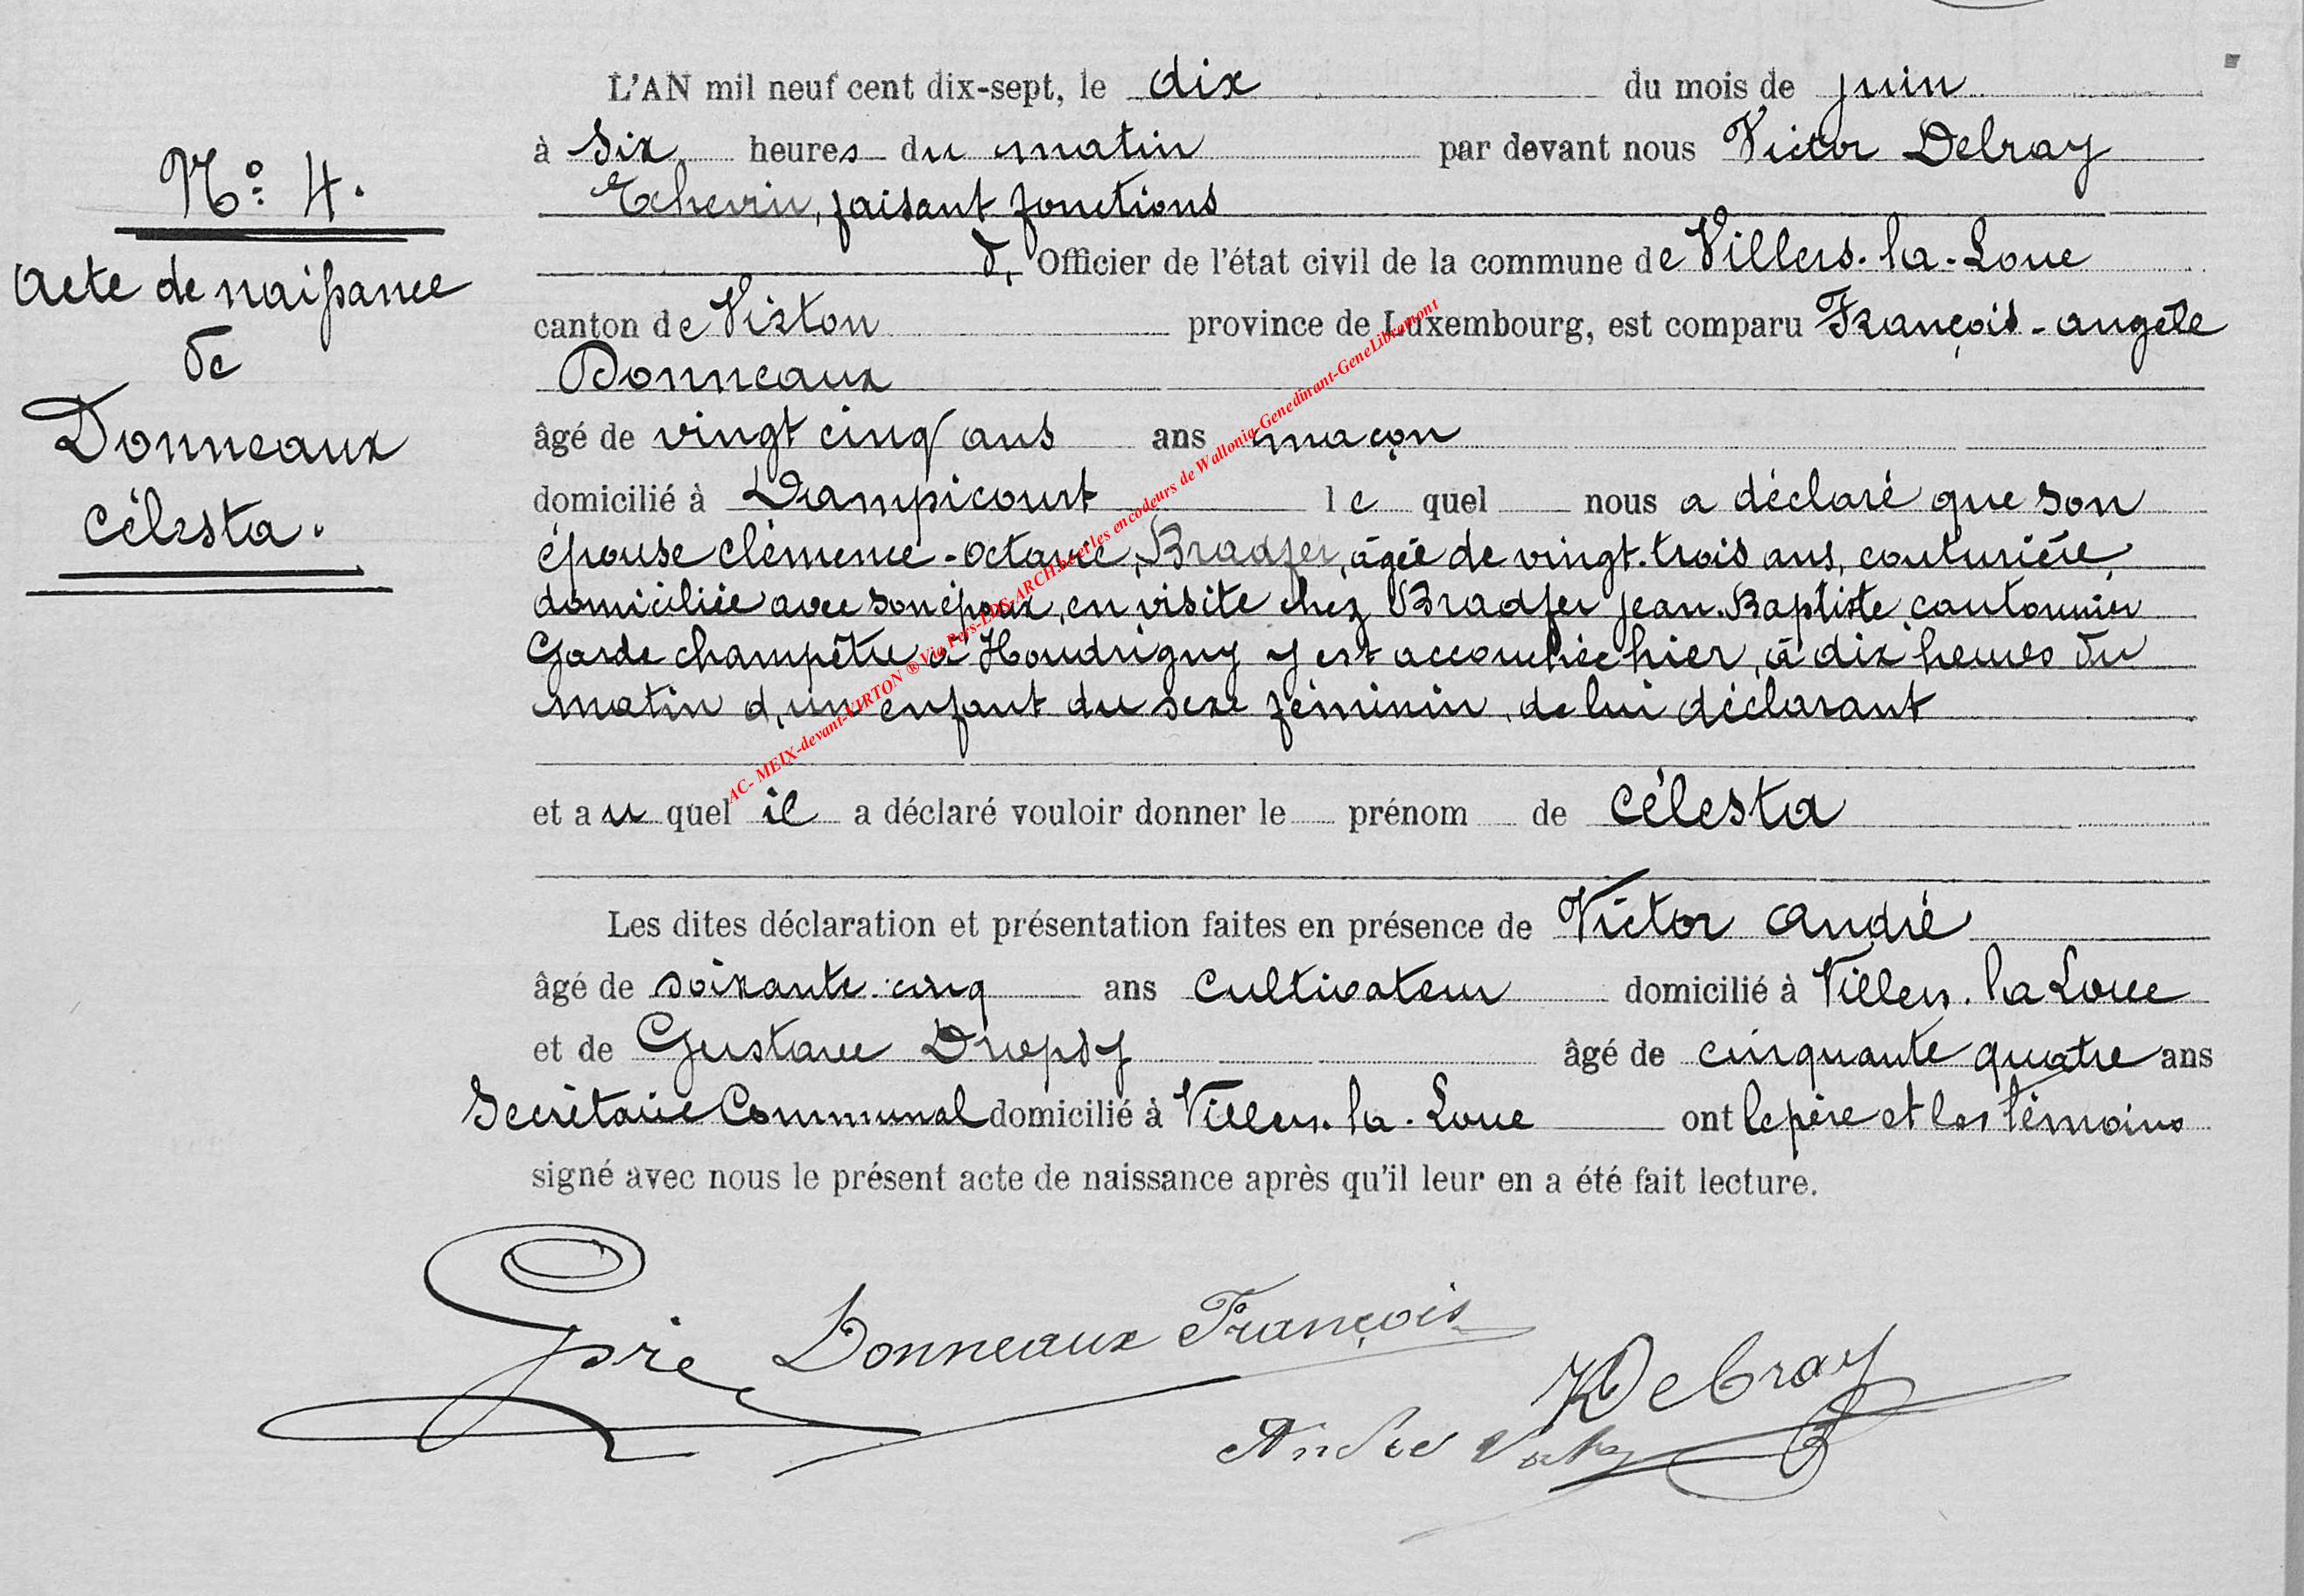 N° 4.
Acte de naissance
de
Donneaux
Célesta.
L'AN mil neuf cent dix-sept, le dix du mois de juin
à six heures du matin par devant nous Victor Delray
Echevin, faisant fonctions
d, Officier de l'état civil de la commune de Villers-la-Loue
canton de Virton province de Luxembourg, est comparu François-angèle
Donneaux
âgé de vingt cinq ans ans maçon
domicilié à Dampicourt le quel nous a déclaré que son
épouse clémence-octavie, Bradfer, âgée de vingt-trois ans, couturière,
domiciliée avec son époux, en visite chez Bradfer jean-Baptiste, cantonnier
Garde champêtre à Houdrigny y est accouchée hier, à dix heures du
matin d'un enfant du sexe féminin, de lui déclarant
et au quel il a déclaré vouloir donner le prénom de Célesta
Les dites déclaration et présentation faites en présence de Victor André
âgé de soixante-cinq ans Cultivateur domicilié à Villers-la Loue
et de Gustave Dropsy âgé de cinquante quatre ans
Secrétaire Communal domicilié à Villers-la-Loue ont le père et les témoins
signé avec nous le présent acte de naissance après qu'il leur en a été fait lecture.
Donneaux François
VDelray
André Victor
AC- MEIX-devant-VIRTON ® Via Pers-LDS-ARCH.be et les encodeurs de Wallonia-Genedinant-GeneLibramont